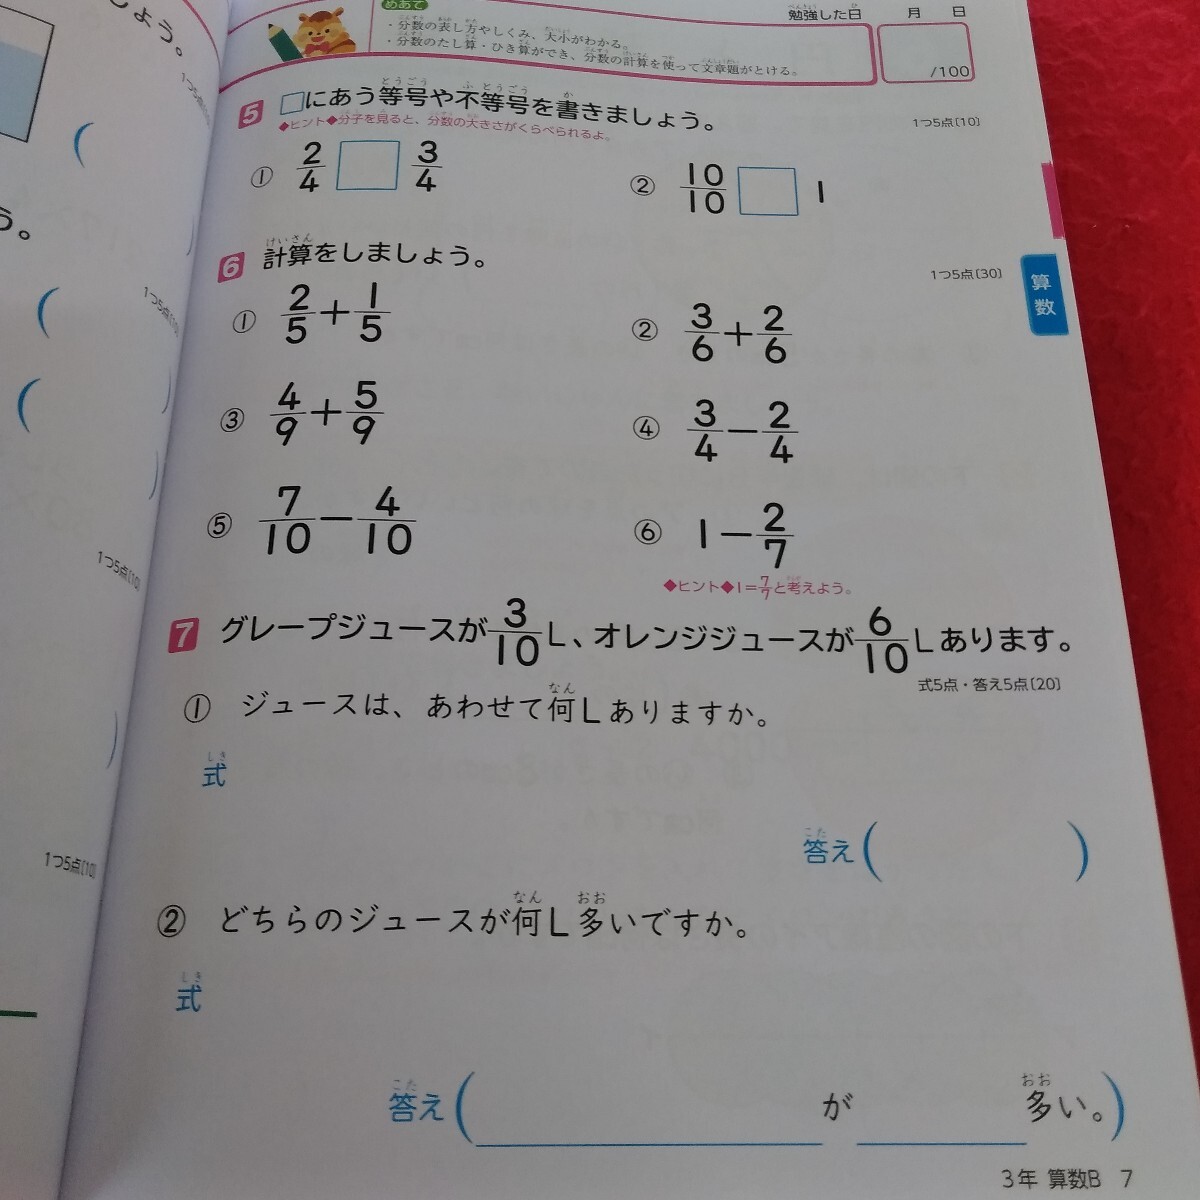 しょう。
1つ5点〔10〕
う。
1つ5点〔10〕
1つ5点〔10〕
1つ5点〔10〕
めあて
・分数の表し方やしくみ、大小がわかる。
・分数のたし算・ひき算ができ、分数の計算を使って文章題がとける。
勉強した日 月 日
/100
5 □にあう等号や不等号を書きましょう。
◆ヒント◆分子を見ると、分数の大きさがくらべられるよ。
1つ5点〔10〕
① 2/4 □ 3/4
② 10/10 □ 1
6 計算をしましょう。
1つ5点〔30〕
算数
① 2/5+1/5
② 3/6+2/6
③ 4/9+5/9
④ 3/4−2/4
⑤ 7/10−4/10
⑥ 1−2/7
◆ヒント◆1=7/7と考えよう。
7 グレープジュースが3/10L、オレンジジュースが6/10Lあります。
式5点・答え5点〔20〕
① ジュースは、あわせて何Lありますか。
式
答え( )
② どちらのジュースが何L多いですか。
式
答え( が 多い。)
3年 算数B 7